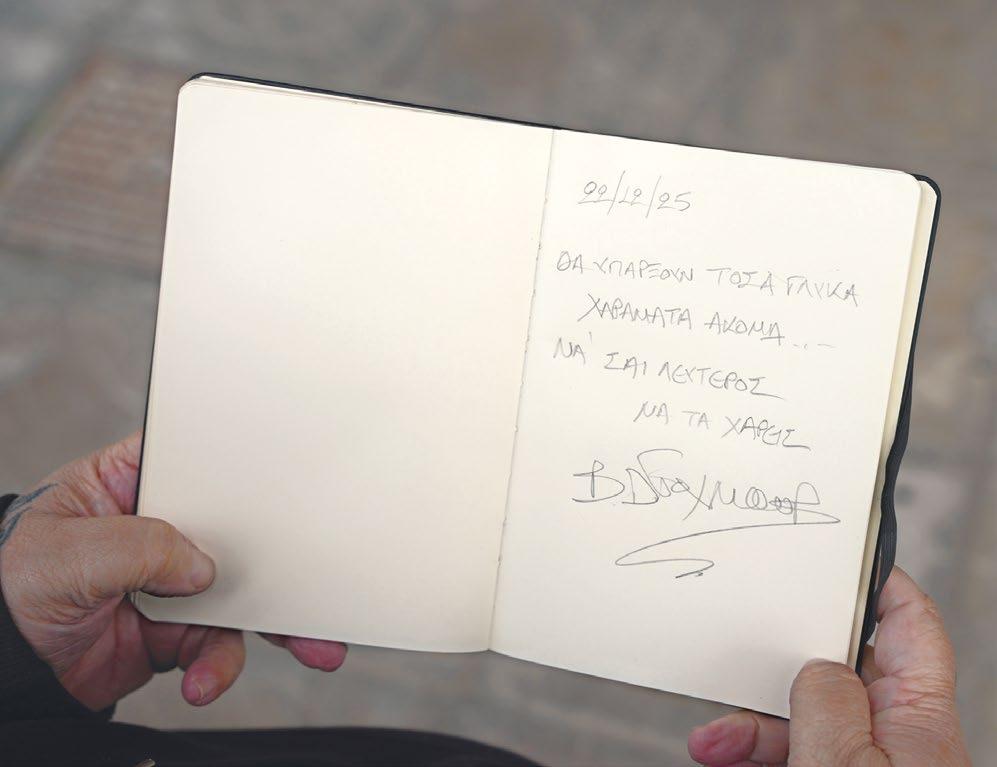 22/12/25
ΘΑ ΥΠΑΡΞΟΥΝ ΤΟΣΑ ΓΛΥΚΑ
ΧΑΡΑΜΑΤΑ ΑΚΟΜΑ...-
ΝΑ' ΣΑΙ ΛΕΥΤΕΡΟΣ
ΝΑ ΤΑ ΧΑΡΕΙΣ